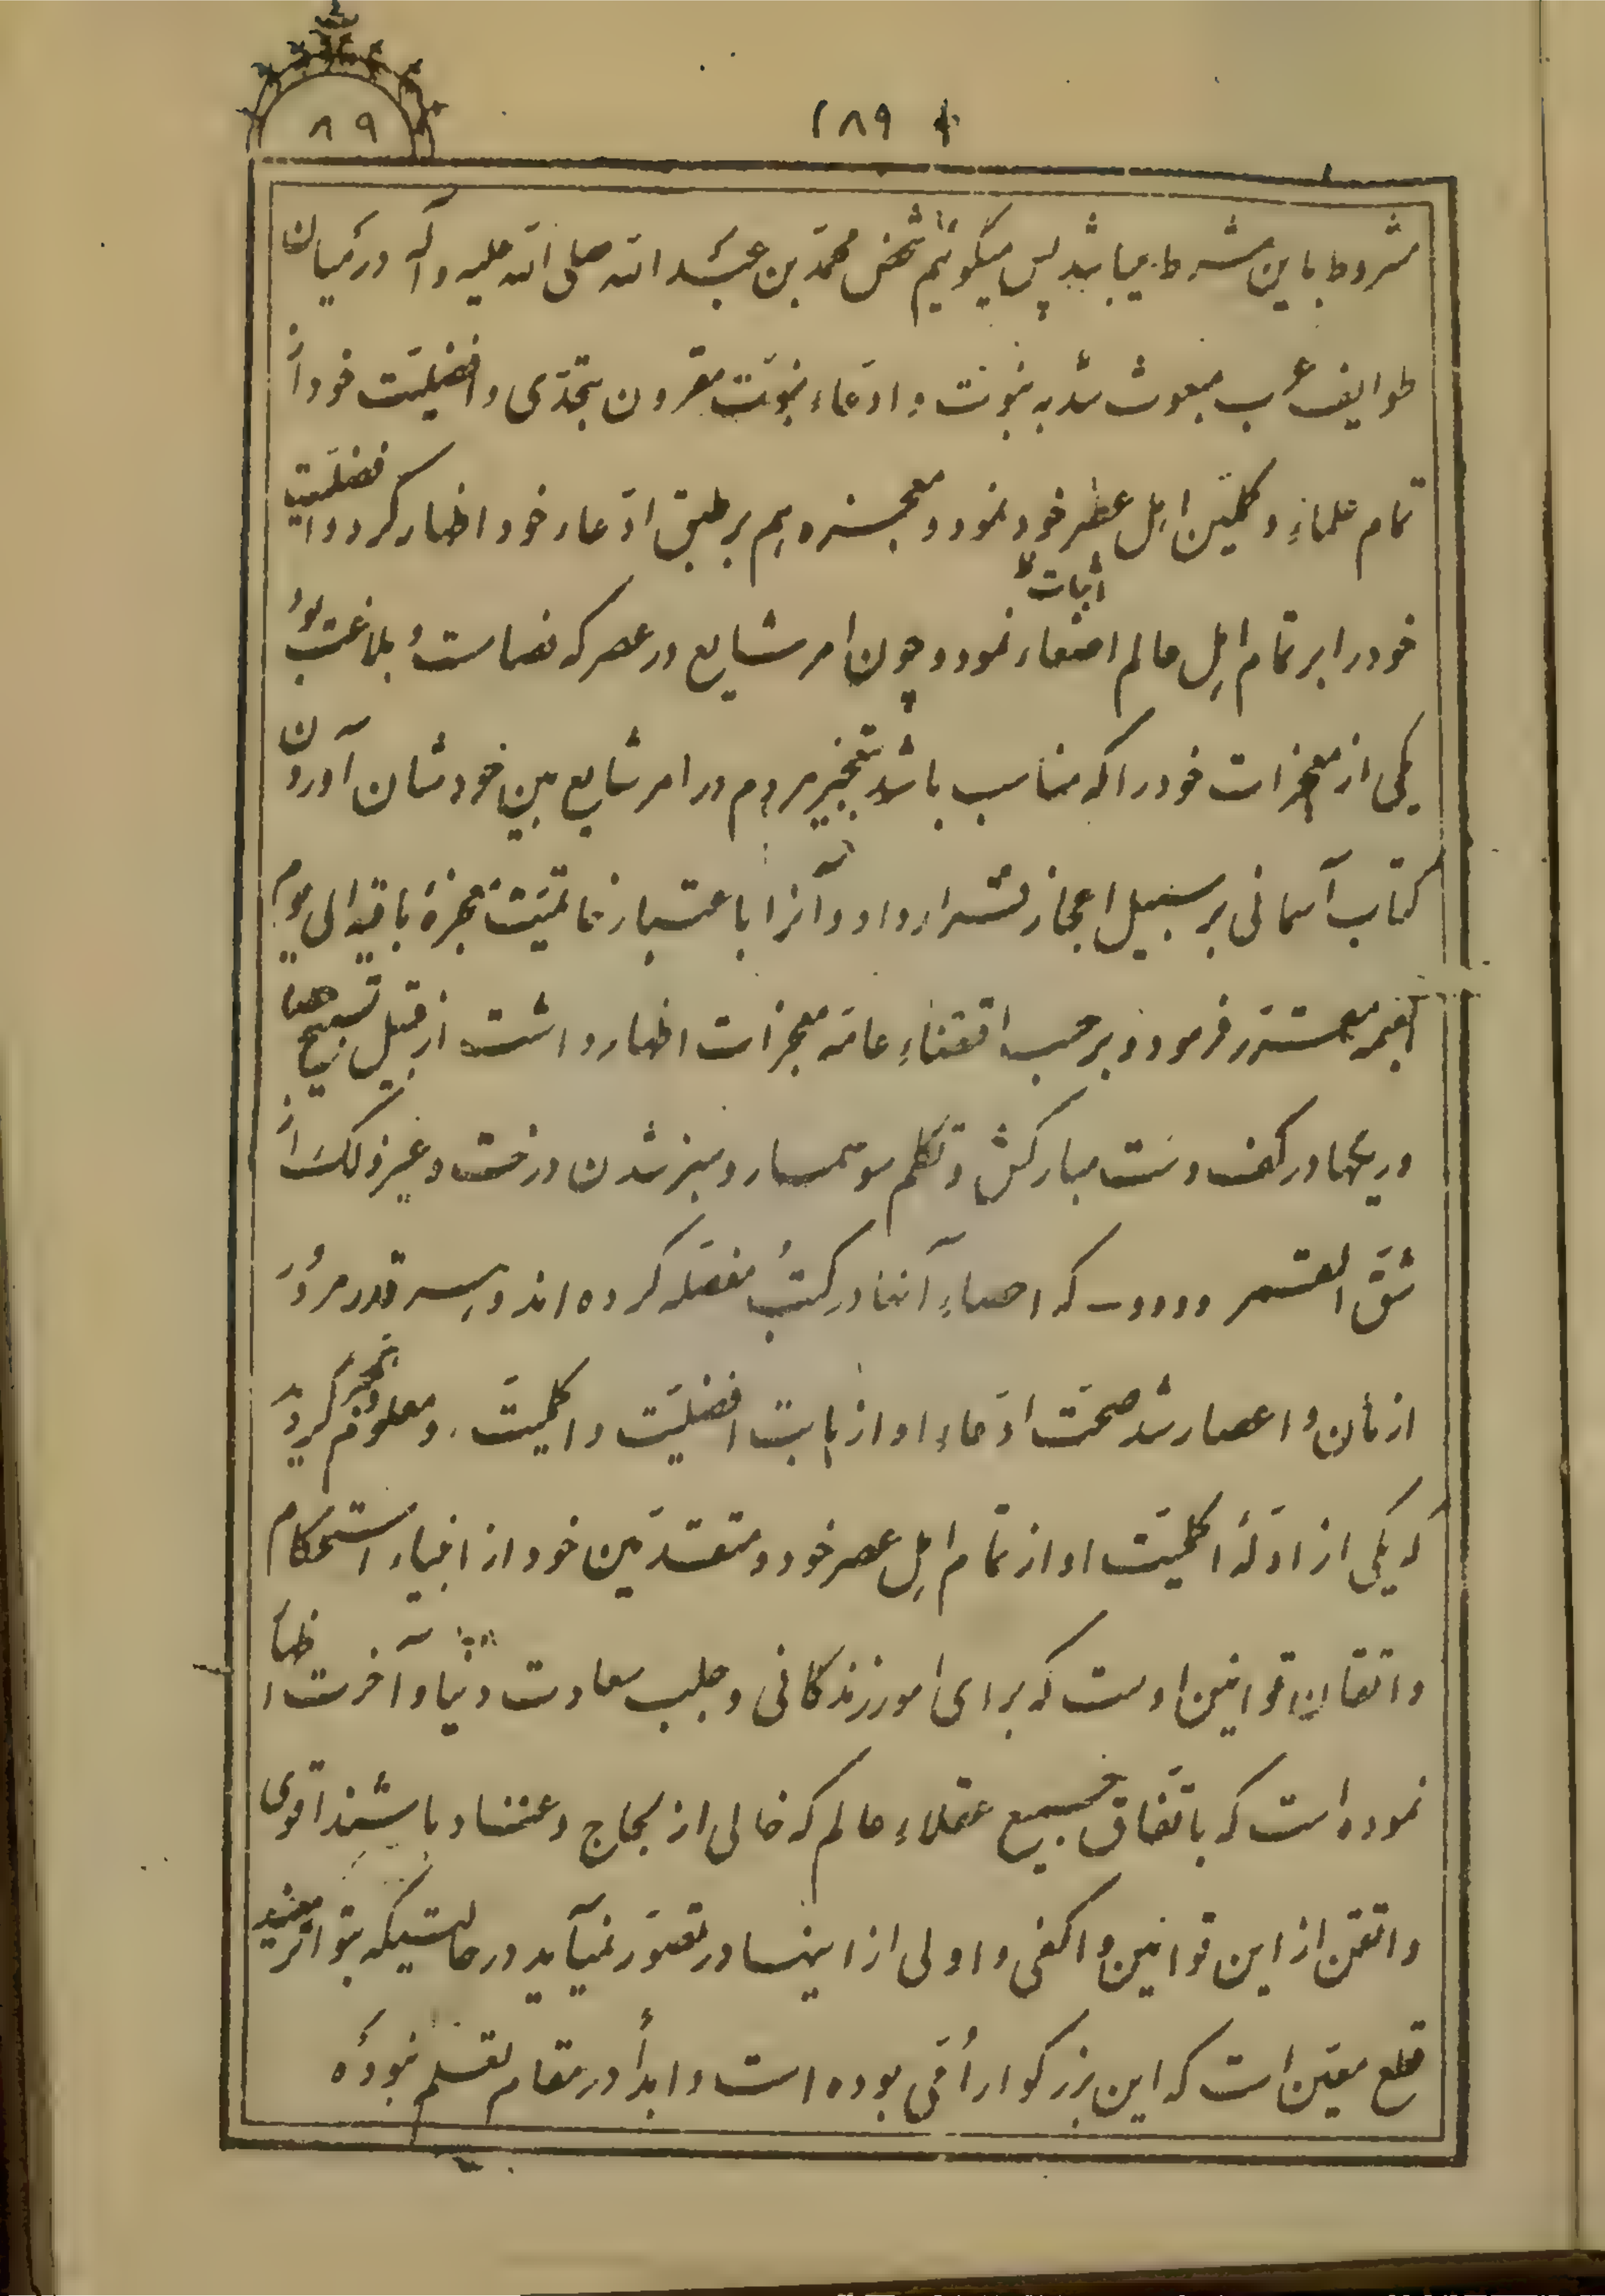 ۸۹
۱۸۹
مشروط باین شرط میباشد پس میگوئیم شخص محمّد بن عبد الله صلی الله علیه و آله در میان
طوایف عرب مبعوث شد به نبوّت و ادّعاء نبوّت مقرون بتحدّی و افضلیّت خود از
تمام علماء و کلمین اهل عصر خود نمود و معجزه هم بر طبق ادّعاء خود اظهار کرد و افضلیّت
خود را بر تمام اهل عالم اثبات نمود و چون امر شایع در عصر که فصاحت و بلاغت بود
یکی از معجزات خود را که مناسب باشد بتعجیز مردم در امر شایع بین خودشان آوردن
کتاب آسمانی بر سبیل اعجاز قرار داد و آنرا باعتبار خاتمیّت معجزهٔ باقیه الی یوم
القیمه مستقرّ فرمود و بر حسب اقتضاء عامّه معجزات اظهار داشت از قبیل تسبیح حصا
و ریگها در کف دست مبارکش و تکلّم سوسمار و سبز شدن درخت و غیر ذلک از
شقّ القمر وووو که احصاء آنها در کتب مفصّله کرده اند و هر قدر مرور
ازمان و اعصار شد صحّت ادّعاء او از بابت افضلیّت و اکملیّت و معلوم گردید
که یکی از ادلّهٔ اکملیّت او از تمام اهل عصر خود و متقدّمین خود از انبیاء استحکام
و اتقان قوانین اوست که برای امور زندگانی و جلب سعادت دنیا و آخرت اظهار
نموده است که باتّفاق جمیع عقلاء عالم که خالی از لجاج و عناد باشند اقوی
و اتقن از این قوانین و اکفی و اولی از اینها در تصوّر نمیآید در حالتیکه بتواتر مفید
قطع معیّن است که این بزرگوار اُمّی بوده است و ابداً در مقام تعلّم نبوده